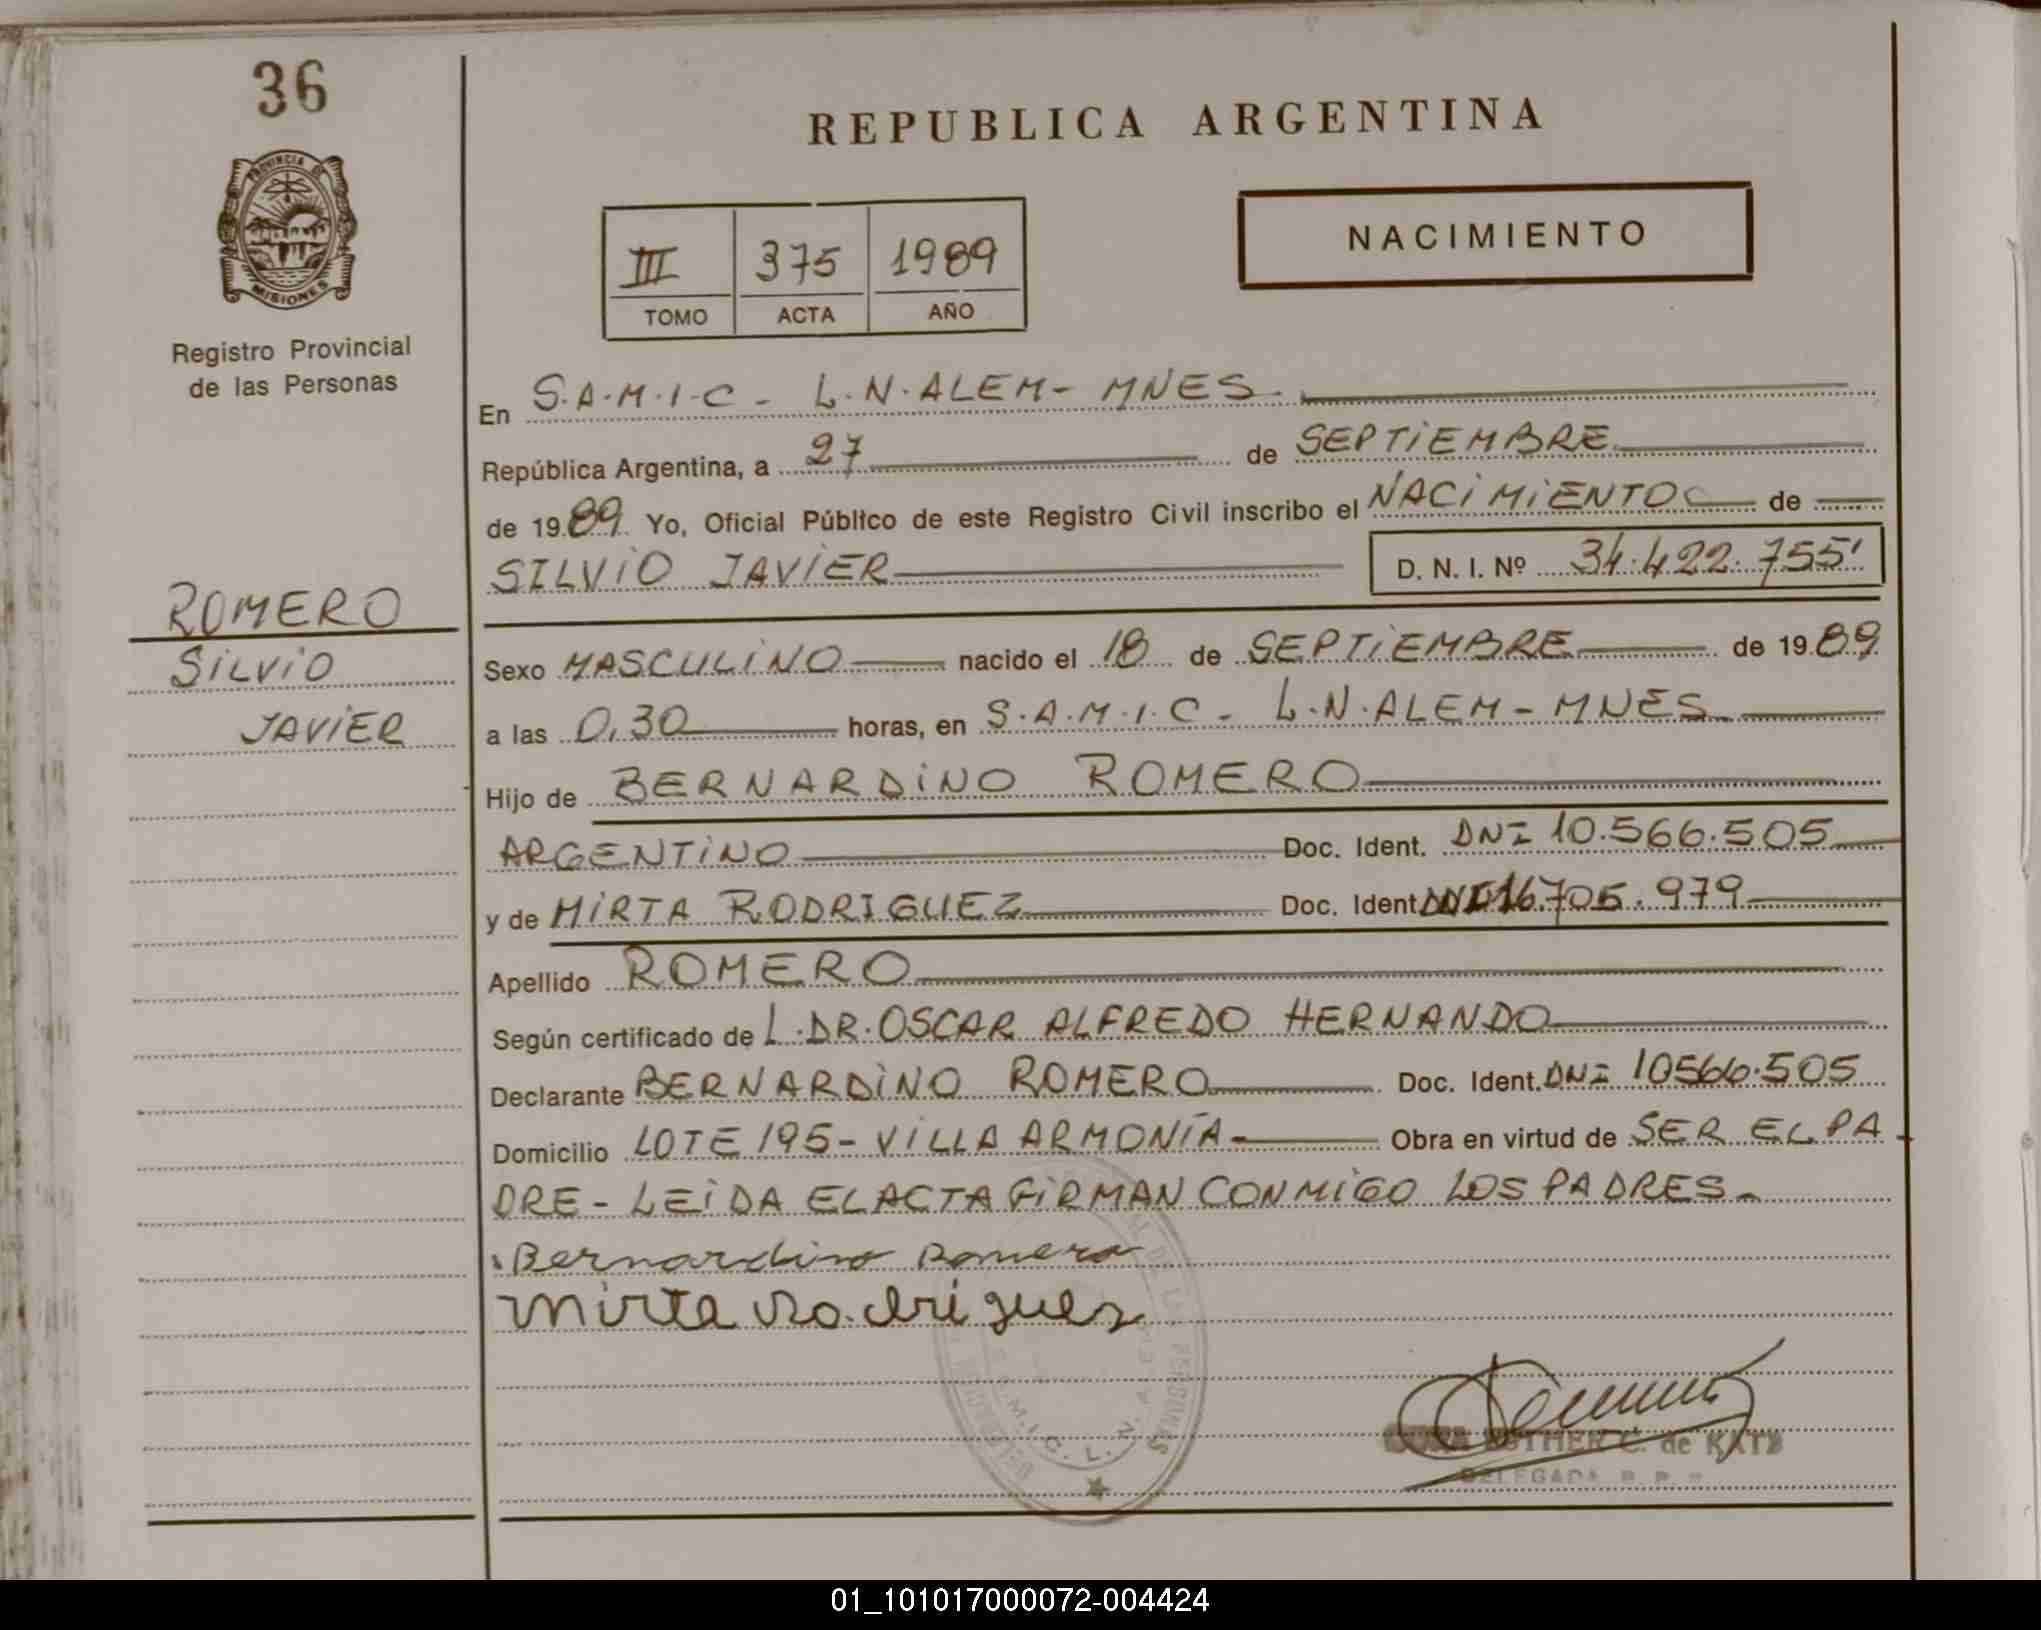 36
REPUBLICA ARGENTINA
PROVINCIA DE
MISIONES
Registro Provincial
de las Personas
III 375 1989
TOMO ACTA AÑO
NACIMIENTO
En S.A.M.I.C - L.N.ALEM - MNES
República Argentina, a 27 de SEPTIEMBRE
de 1989 Yo, Oficial Público de este Registro Civil inscribo el NACIMIENTO de
SILVIO JAVIER D. N. I. Nº 34.422.755
ROMERO
SILVIO
JAVIER
Sexo MASCULINO nacido el 18 de SEPTIEMBRE de 1989
a las 0,30 horas, en S.A.M.I.C - L.N.ALEM - MNES
Hijo de BERNARDINO ROMERO
ARGENTINO Doc. Ident. DNI 10.566.505
y de MIRTA RODRIGUEZ Doc. Ident. DNI 16.705.979
Apellido ROMERO
Según certificado de L. DR. OSCAR ALFREDO HERNANDO
Declarante BERNARDINO ROMERO Doc. Ident. DNI 10566.505
Domicilio LOTE 195 - VILLA ARMONÍA - Obra en virtud de SER EL PA
DRE - LEIDA EL ACTA FIRMAN CONMIGO LOS PADRES -
Bernardino Romero
Mirta Rodriguez
S.A.M.I.C. L. N.
ESTHER C. de KATZ
DELEGADA
01_101017000072-004424